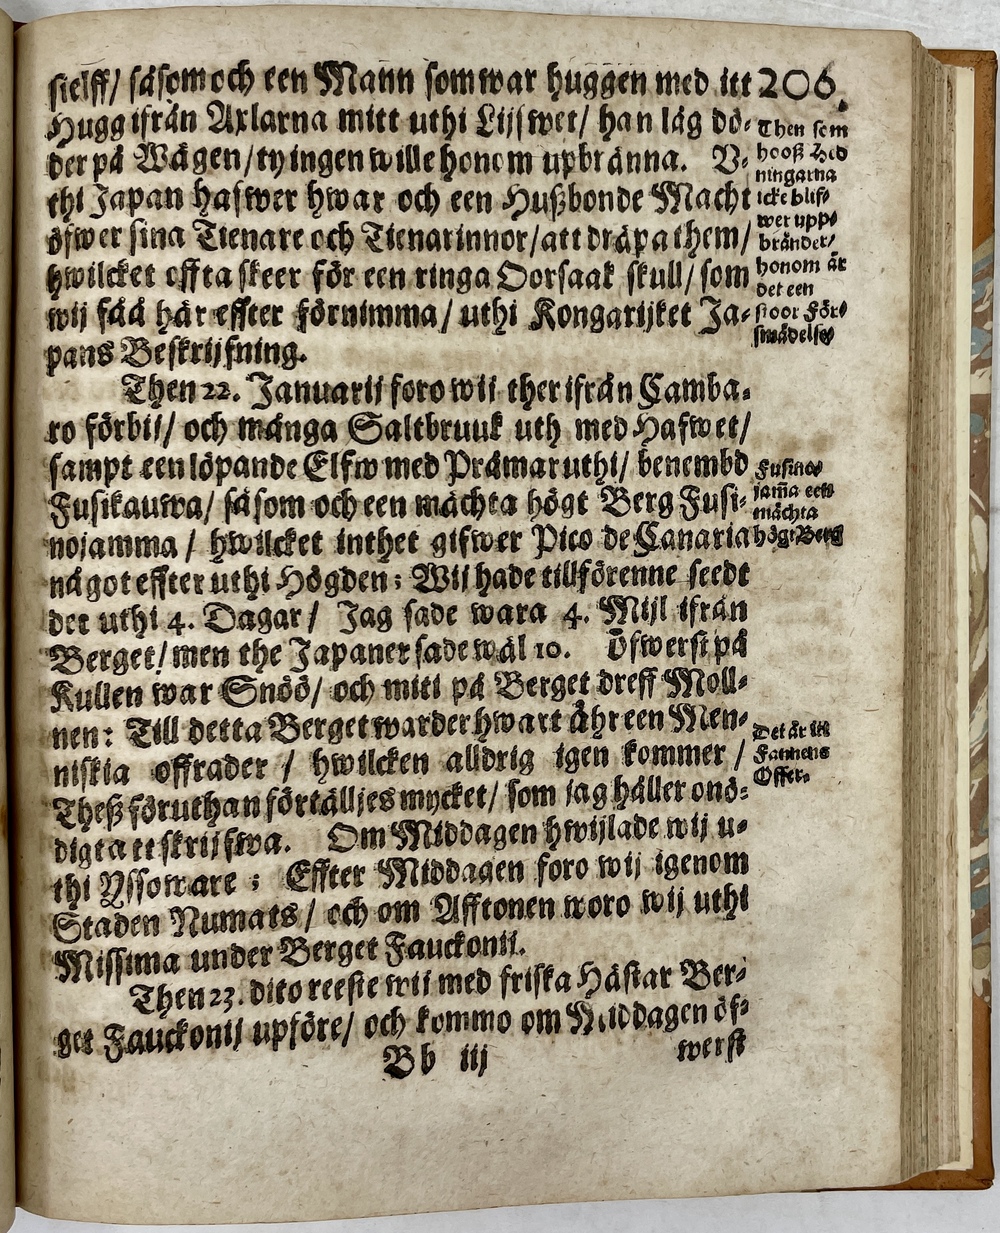 sielff/ såsom och een Mann som war huggen med itt
206.
Hugg ifrån Axlarna mitt uthi Lijfwet/ han låg dö-
der på Wägen/ ty ingen wille honom upbränna. V-
thi Japan hafwer hwar och een Hußbonde Macht
öfwer sina Tienare och Tienarinnor/ att dräpa them/
hwilcket offta skeer för een ringa Oorsaak skull/ som
wij fåå här effter förnimma/ uthi Kongarijket Ja-
pans Beskrijfning.
Then som
hooß Hed
ningarna
icke blif-
wer upp-
bränder/
honom är
det een
stoor För-
smädelse
Then 22. Januarij foro wij ther ifrån Camba-
ro förbij/ och många Saltbruuk uth med Hafwet/
sampt een löpande Elfw med Prämar uthi/ benembd
Fusikauwa/ såsom och een mächta högt Berg Fusi-
nojamma/ hwilcket inthet gifwer Pico de Canaria
något effter uthi Högden; Wij hade tillförenne seedt
det uthi 4. Dagar/ Jag sade wara 4. Mijl ifrån
Berget/ men the Japaner sade wäl 10. Öfwerst på
Kullen war Snöö/ och mitt på Berget dreff Moll-
nen: Till detta Berget warder hwart åhr een Men-
niskia offrader/ hwilcken alldrig igen kommer/
Theß föruthan förtälljes mycket/ som jag håller onö-
digt att skrijfwa. Om Middagen hwijlade wij u-
thi Yssoware; Effter Middagen foro wij igenom
Staden Numats/ och om Afftonen woro wij uthi
Missima under Berget Fauckonij.
Fusino-
jam̃a een
mächta
högt Berg
Det är itt
Fannens
Offer.
Then 23. dito reeste wij med friska Hästar Ber-
get Fauckonij upföre/ och kommo om Middagen öf-
Bb iij
werst